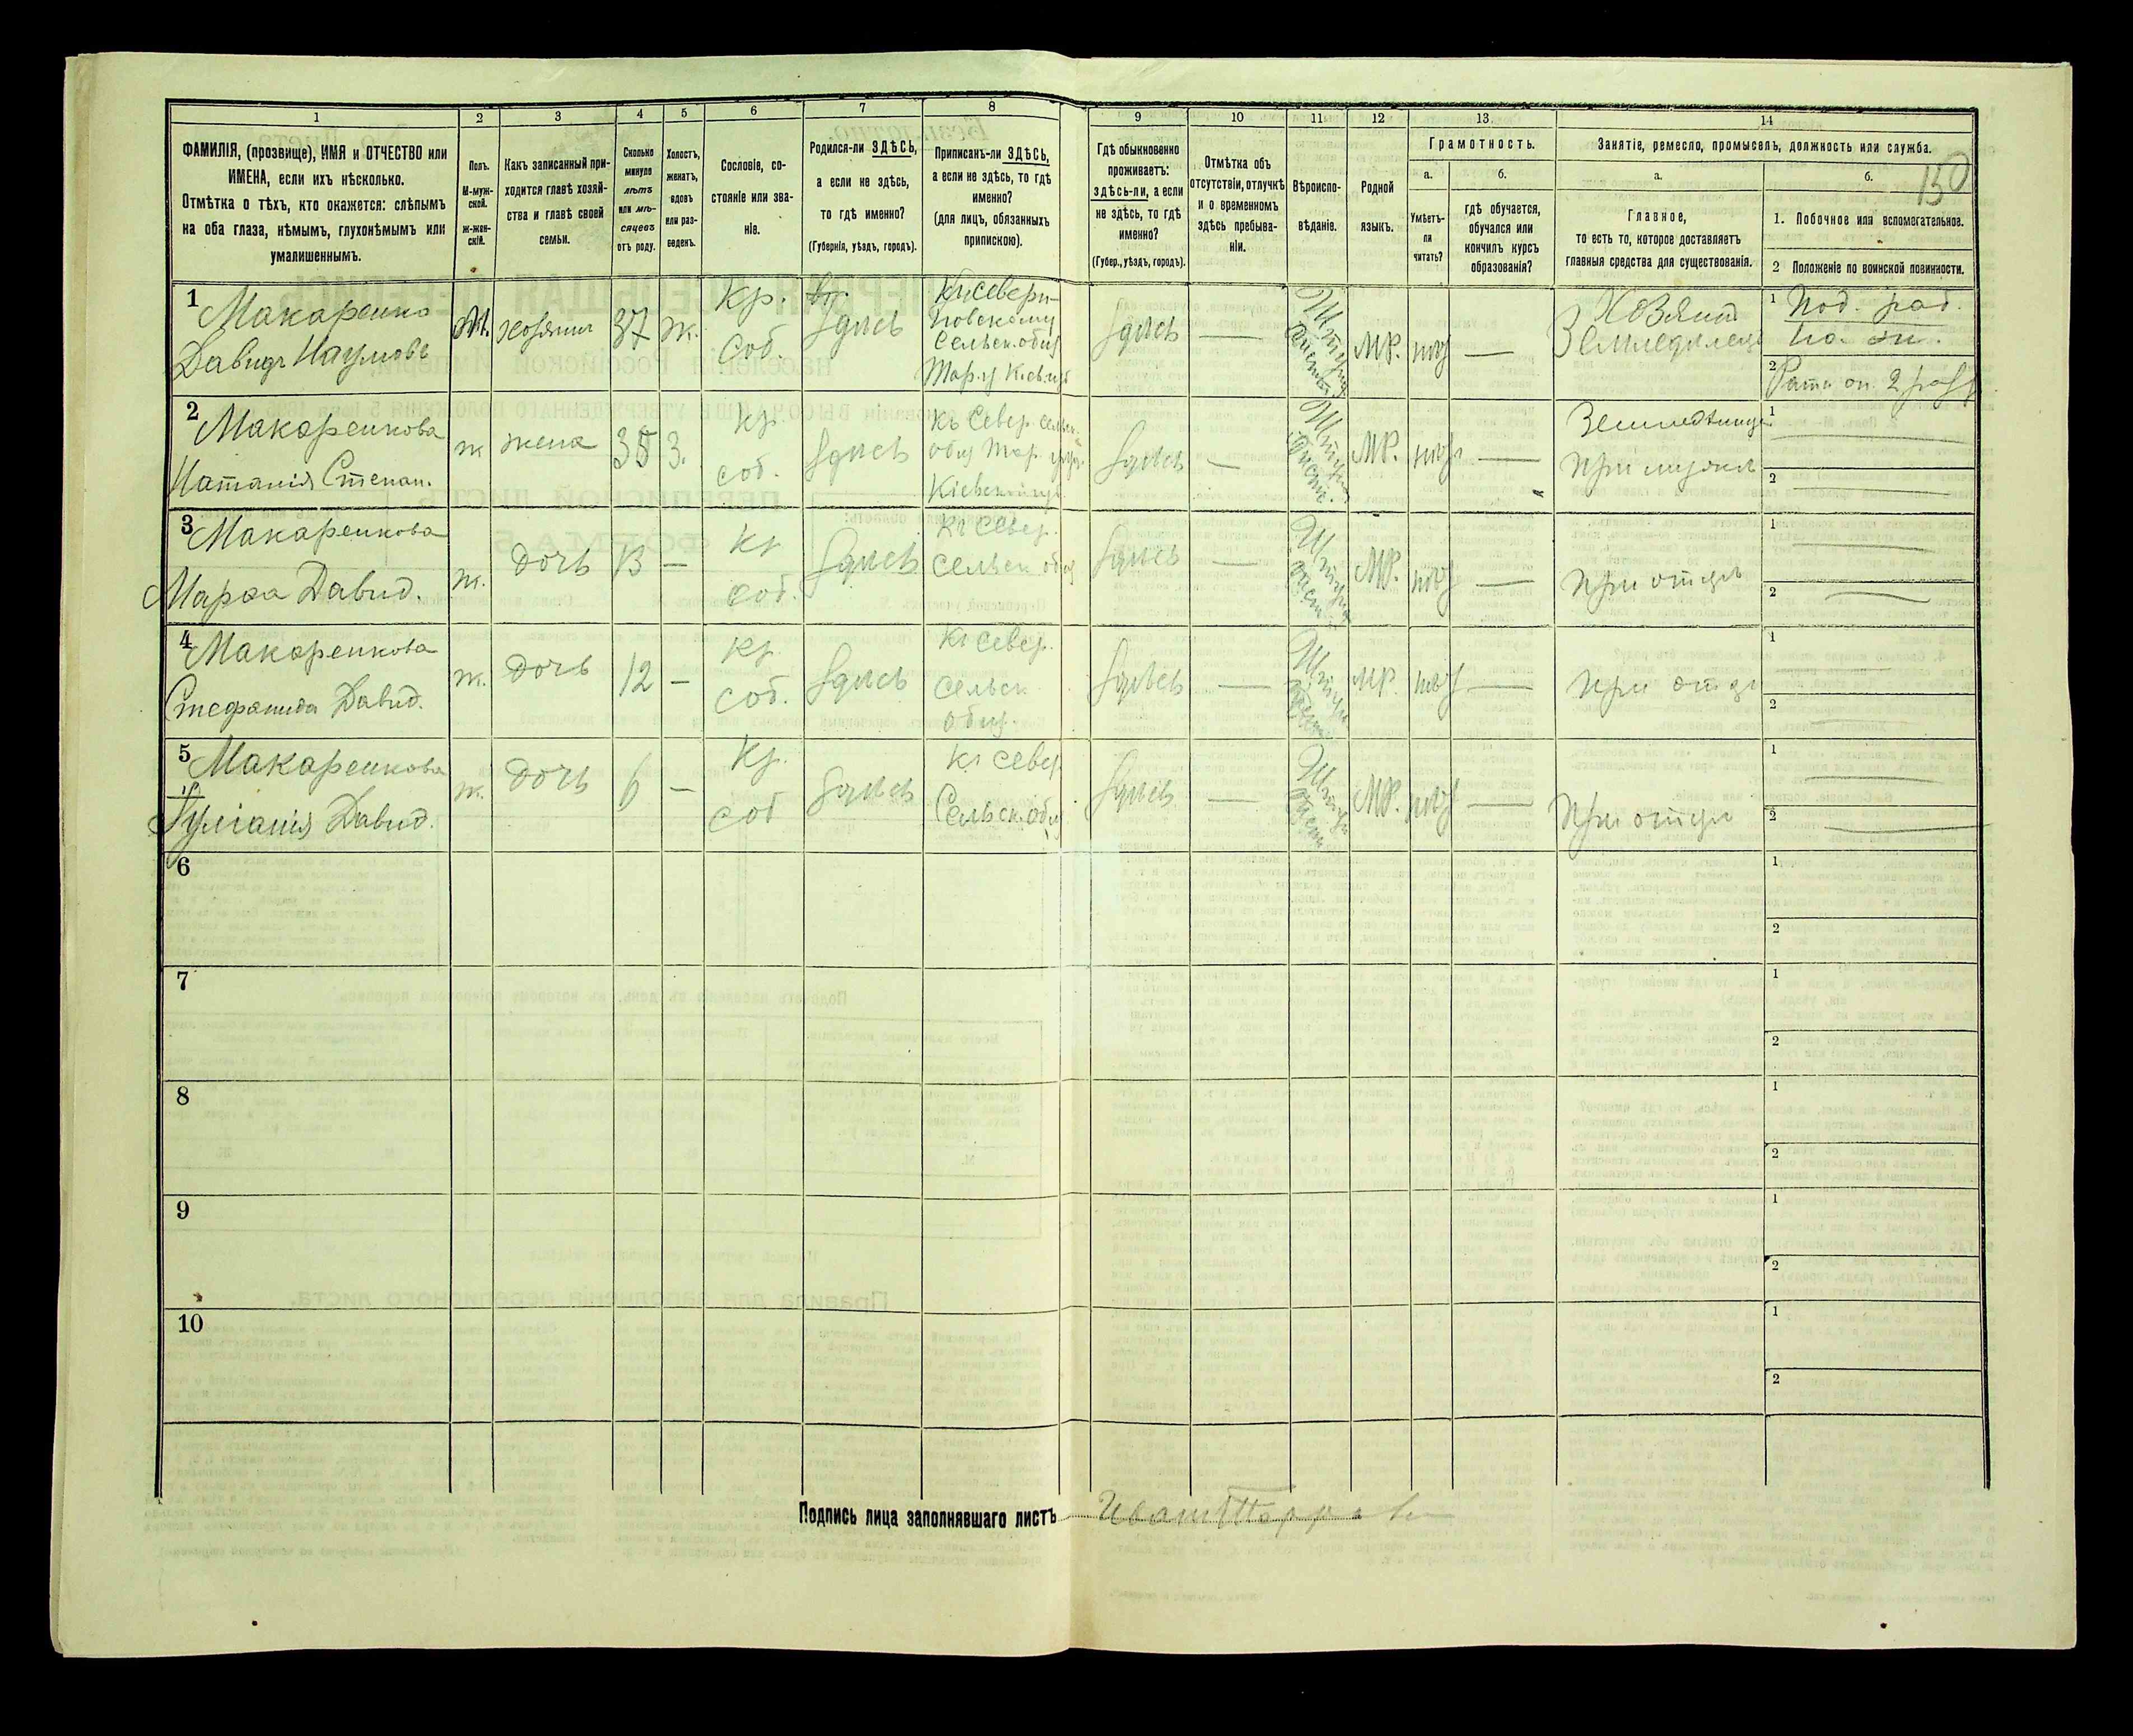 1 2 3 4 5 6 7 8 9 10 11 12 13 14
ФАМИЛІЯ, (прозвище), ИМЯ и ОТЧЕСТВО или
ИМЕНА, если ихъ нѣсколько.
Отмѣтка о тѣхъ, кто окажется: слѣпымъ
на оба глаза, нѣмымъ, глухонѣмымъ или
умалишеннымъ.
Полъ.
М-муж-
ской.
Ж-жен-
скій.
Какъ записанный при-
ходится главѣ хозяй-
ства и главѣ своей
семьи.
Сколько
минуло
лѣтъ
или мѣ-
сяцевъ
отъ роду.
Холостъ,
женатъ,
вдовъ
или раз-
веденъ.
Сословіе, со-
стояніе или зва-
ніе.
Родился-ли ЗДѢСЬ,
а если не здѣсь,
то гдѣ именно?
(Губернія, уѣздъ, городъ).
Приписанъ-ли ЗДѢСЬ,
а если не здѣсь, то гдѣ
именно?
(для лицъ, обязанныхъ
припискою).
Гдѣ обыкновенно
проживаетъ:
здѣсь-ли, а если
не здѣсь, то гдѣ
именно?
(Губер., уѣздъ, городъ).
Отмѣтка объ
отсутствіи, отлучкѣ
и о временномъ
здѣсь пребыва-
ніи.
Вѣроиспо-
вѣданіе.
Родной
языкъ.
Грамотность.
а.
Умѣетъ-
ли
читать?
б.
гдѣ обучается,
обучался или
кончилъ курсъ
образованія?
Занятіе, ремесло, промыселъ, должность или служба.
а.
Главное,
то есть то, которое доставляетъ
главныя средства для существованія.
б.
150
1. Побочное или вспомогательное.
2 Положеніе по воинской повинности.
1
Макаренко
Давидъ Наумовъ
М.
хозяинъ
37
ж.
Кр.
соб.
здѣсь
Сельск. общ
здѣсь
—
МР.
—
Хозяинъ
Земледѣлецъ
1 Под. раб.
2
2
Макаренкова
Наталія Степан.
ж
жена
35
З.
Кр.
соб.
здѣсь
Къ Север. сельск.
здѣсь
—
МР.
—
при мужѣ
1
2
3
Макаренкова
Марѳа Давид.
ж.
дочь
13
—
Кр
соб.
здѣсь
Къ Север.
сельск общ
здѣсь
—
МР.
—
при отцѣ
1
2
4
Макаренкова
Стефанида Давид.
ж.
дочь
12
—
Кр
соб.
здѣсь
Къ север.
сельск
общ.
здѣсь
—
МР.
—
при отцѣ
1
2
5
Макаренкова
Іуліанія Давид.
ж.
дочь
6
—
Кр.
соб
здѣсь
Къ север
Сельск. общ
здѣсь
—
МР.
—
при отцѣ
1
2
6
1
2
7
1
2
8
1
2
9
1
2
10
1
2
Подпись лица заполнявшаго листъ